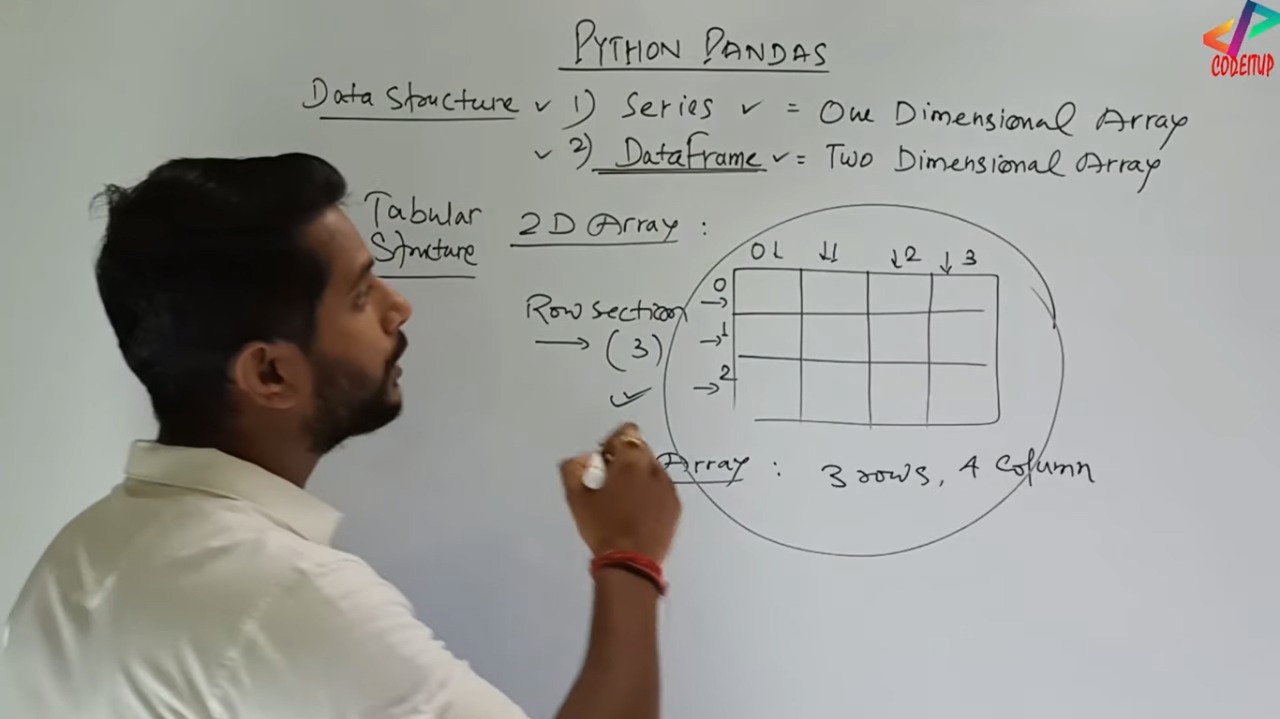 PYTHON PANDAS
CODEITUP
Data Structure ✓ 1) Series ✓ = One Dimensional Array
✓ 2) DataFrame ✓ = Two Dimensional Array
Tabular Structure
2D Array :
0↓ ↓1 ↓2 ↓3
0 →
1 →
2 →
Row section
→ (3)
✓
Array : 3 rows, 4 Column